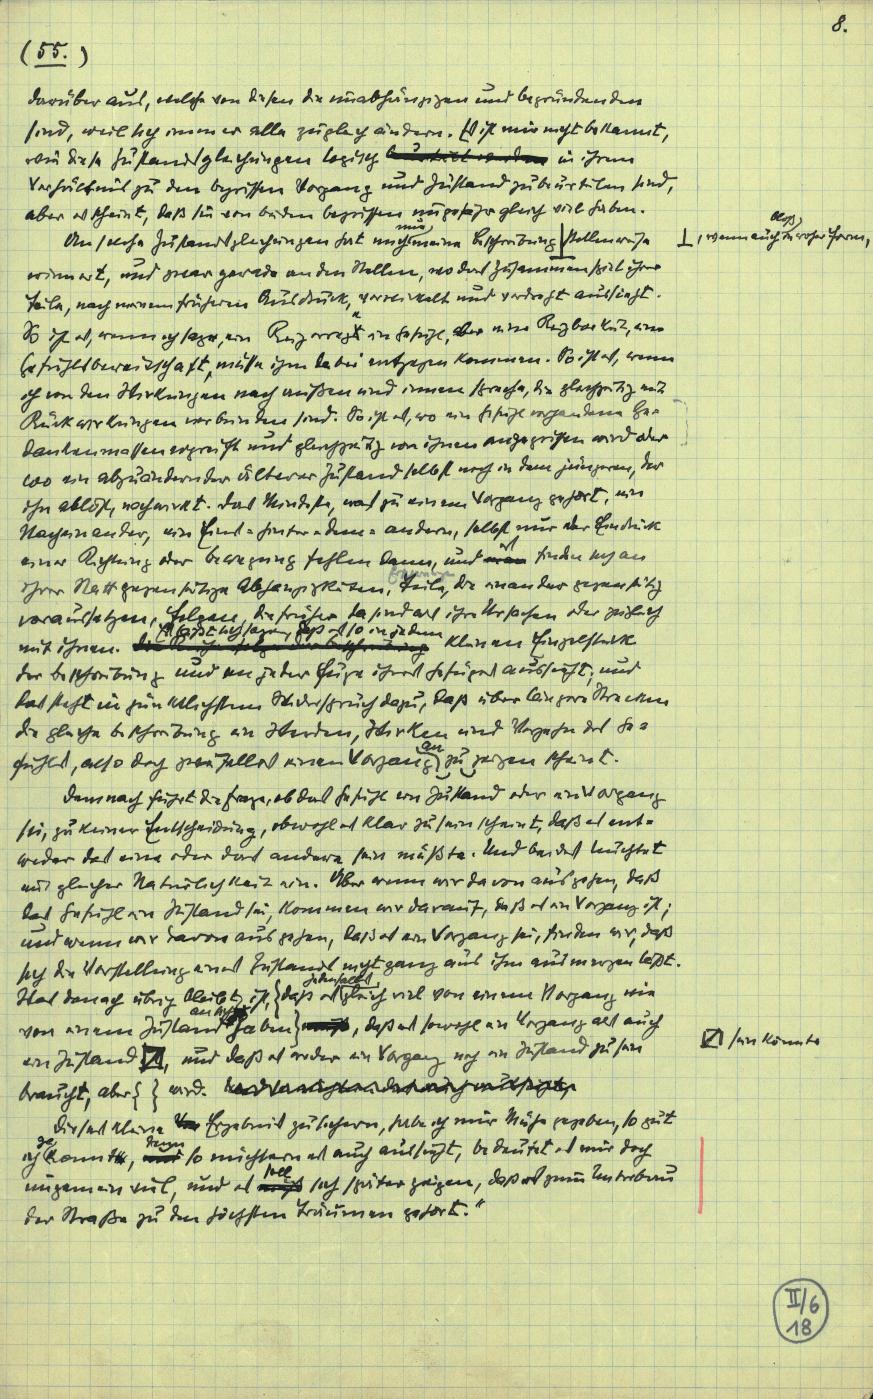 8.
(55.)
darüber aus, welche von diesen die unabhängigen und begründenden
sind, weil sich immer alle zugleich ändern. Es ist mir nicht bekannt,
wie diese Zustandsgleichungen logisch in ihrem
Verhältnis zu den begriffen Vorgang und Zustand zu beurteilen sind,
aber es scheint, daß sie von beiden begriffen ungefähr gleich viel haben.
An solche Zustandsgleichungen hat mich nun meine beschreibung ⊥ stellenweise ⊥, wenn auch bloß in roher Form,
erinnert, und zwar gerade an den Stellen, wo das Zusammenspiel ihrer
Teile, nach meinem früheren Ausdruck, verwickelt und verdreht aussieht.
So ist es, wenn ich sage, ein Reiz errege ein Gefühl, aber eine Reizbarkeit, eine
Gefühlsbereitschaft, müsse ihm dabei entgegen kommen. So ist es, wenn
ich von den Wirkungen nach außen und innen spreche, die gleichzeitig mit
Rückwirkungen verbunden sind. So ist es, wo ein Gefühl vorhandene Ge-
dankenmassen ergreift und gleichzeitig von ihnen angegriffen wird oder
wo ein abzuändernder älterer Zustand selbst noch in dem jüngeren, der
ihn ablöst, nachwirkt. Das Mindeste, was zu einem Vorgang gehört, ein
Nacheinander, ein Eins-hinter-dem-andern, selbst nur der Eindruck
einer Richtung oder bewegung fehlen dann, und wir finden uns an
ihrer Statt gegenseitige Abhängigkeiten, Teile, die einander gegenseitig
voraussetzen, Folgen, die früher da sind als ihre Ursachen oder zugleich
mit ihnen. Es läßt sich sagen, daß es so in jedem kleinen Einzelstück
der beschreibung und an jeder Fuge ihres Gefüges aussieht; und
das steht in pünktlichstem Widerspruch dazu, daß über längere Strecken
die gleiche beschreibung ein Werden, Wirken und Vergehn des Ge-
fühls, also doch zweifellos einen Vorgang an zu zeigen scheint.
Demnach führt die Frage, ob das Gefühl ein Zustand oder ein Vorgang
sei, zu keiner Entscheidung, obwohl es klar zu sein scheint, daß es ent-
weder das eine oder das andere sein müßte. Und beides leuchtet
mit gleicher Natürlichkeit ein. Aber wenn wir davon ausgehen, daß
das Gefühl ein Zustand sei, kommen wir darauf, daß es ein Vorgang ist;
und wenn wir davon ausgehen, daß es ein Vorgang sei, finden wir, daß
sich die Vorstellung eines Zustands nicht ganz aus ihm ausmerzen läßt.
Was danach übrig bleibt, ist, {daß es jedenfalls gleich viel von einem Vorgang wie
von einem Zustand an sich haben}, daß es sowohl ein Vorgang als auch
ein Zustand ☑, und daß es weder ein Vorgang noch ein Zustand zu sein ☑ sein könnte
braucht, aber { } wird.
Dieses kleine Ergebnis zu sichern, habe ich mir Mühe gegeben, so gut
ich konnte, denn so nüchtern es auch aussieht, bedeutet es mir doch
ungemein viel, und es soll sich später zeigen, daß es zum Unterbau
der Straße zu den höchsten Träumen gehört."
II/6
18